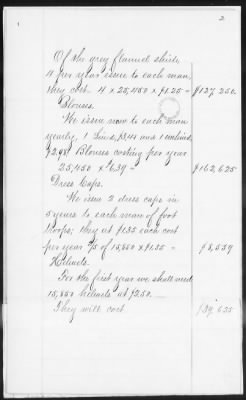 2
1
Of the grey flannel shirts
4 per year issue to each man,
they cost 4 x 25,450 x $1.25 = $127,250.
Blouses.
We issue now to each man
yearly, 1 lined, $3.41 and 1 unlined,
$2.98. Blouses costing per year
25,450 x $6.39 = $162,625
Dress Caps.
We issue 2 dress caps in
5 years to each man of foot
troops; they at $1.35 each cost
per year 2/5 of 15,850 x $1.35 = $8,559
Helmets.
For the first year we shall need
15,850 helmets at $2.50.—
They will cost $39,625